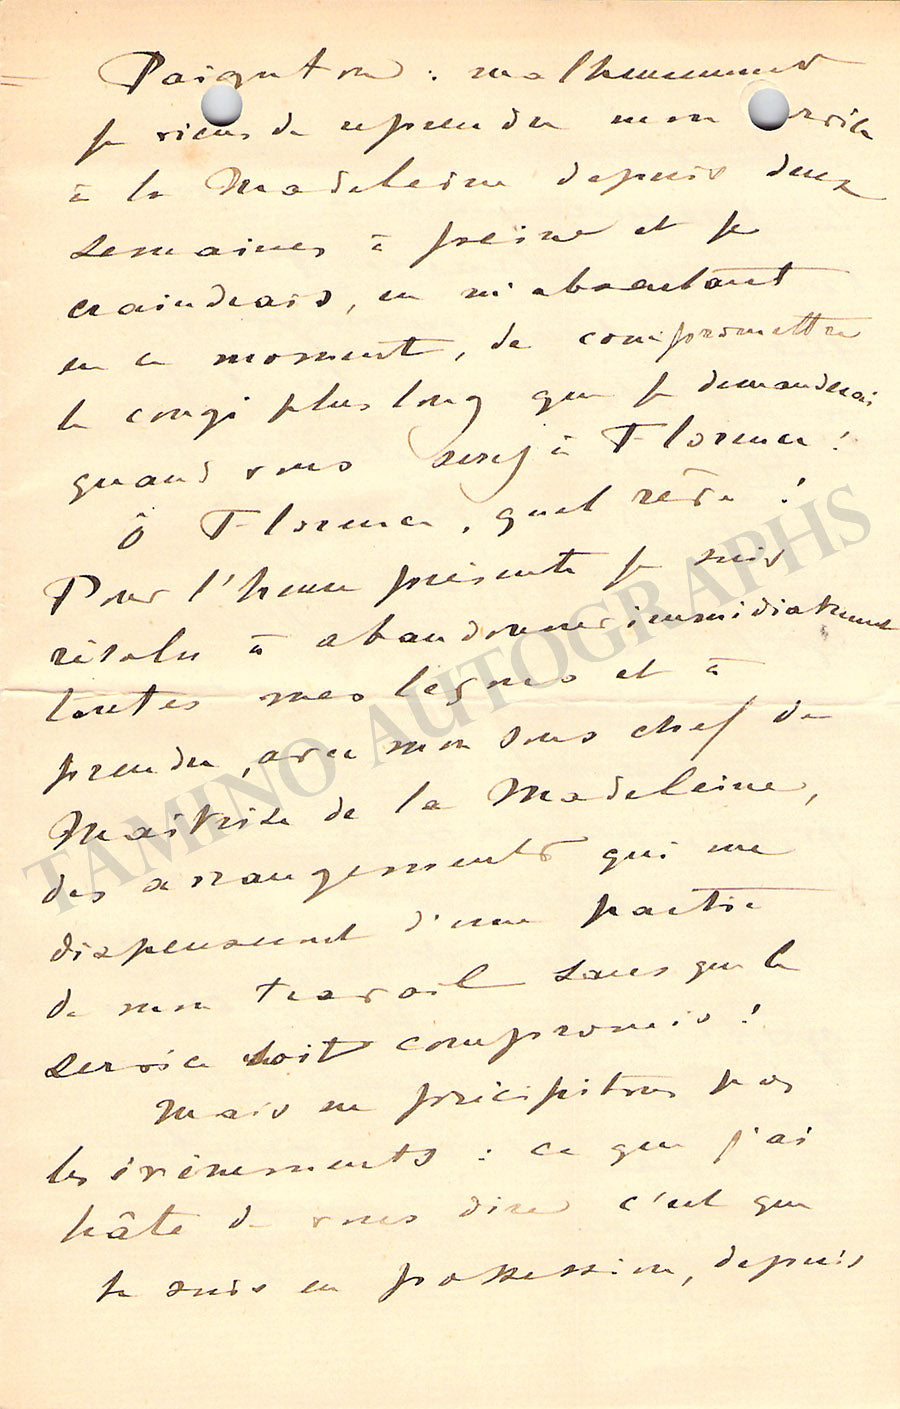 Paignton : malheureusement
je viens de reprendre mon service
à la Madeleine depuis deux
semaines à peine et je
craindrais, en m'absentant
en ce moment, de compromettre
le congé plus long que je demanderai
quand vous serez à Florence !
Ô Florence, quel rêve !
Pour l'heure présente je suis
résolu à abandonner immédiatement
toutes mes leçons et à
prendre, avec mon sous chef de
Maîtrise de la Madeleine,
des arrangements qui me
dispenseront d'une partie
de mon travail sans que le
service soit compromis !
Mais ne précipitons pas
les évènements : ce que j'ai
hâte de vous dire c'est que
je suis en possession, depuis
TAMINO AUTOGRAPHS